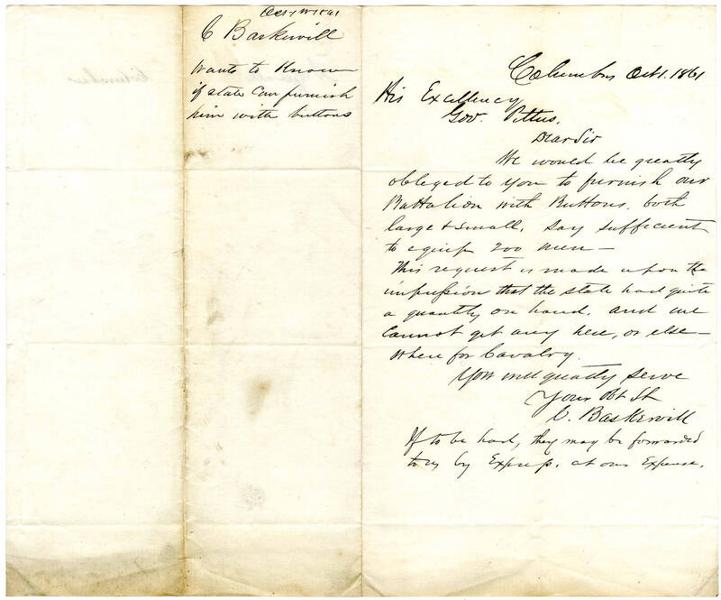 Oct 1 1861
C Baskervill
Wants to Know
if state can furnish
him with buttons
Columbus Oct 1. 1861
His Excellency
Gov. Pettus.
Dear Sir
We would be greatly
obleged to you to furnish our
Battalion with Buttons. both
large & small, say sufficient
to equip 200 men —
This request is made upon the
impression that the state had quite
a quantity on hand. and we
cannot get any here, or else-
where for Cavalry.
You will greatly serve
Your Obt St
C. Baskervill
If to be had, they may be forwarded
to us by Express. at our Expense.